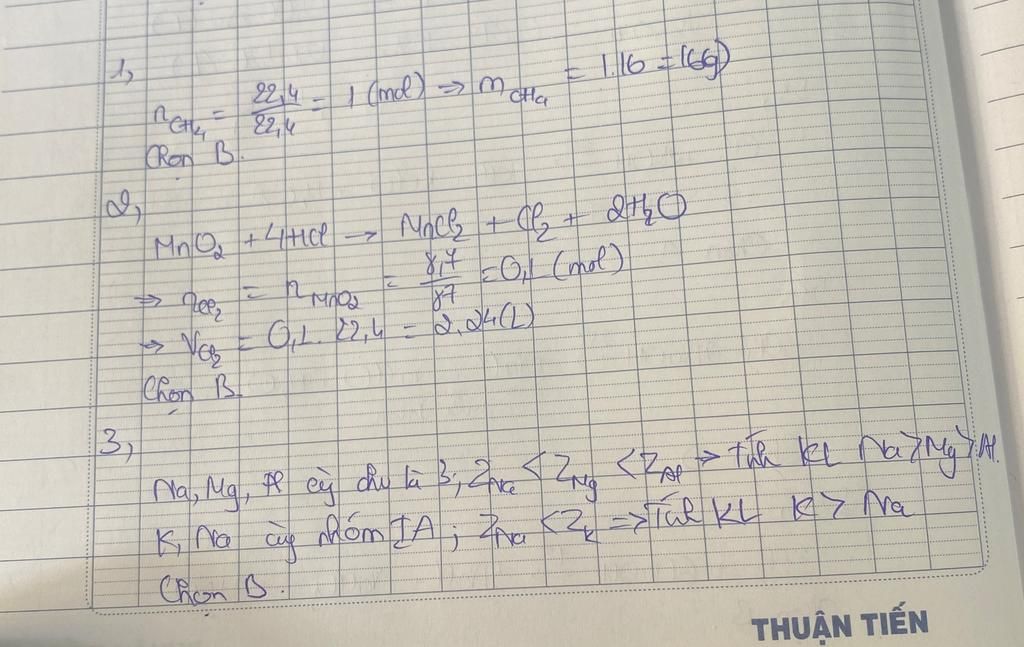 1,
nCH₄ = 22,4/22,4 = 1 (mol) => mCH₄ = 1.16 = 16(g)
Chọn B.
2,
MnO₂ + 4HCl → MnCl₂ + Cl₂ + 2H₂O
=> nCl₂ = nMnO₂ = 8,7/87 = 0,1 (mol)
→ VCl₂ = 0,1. 22,4 = 2,24(L)
Chọn B
3,
Na, Mg, Al cùng chu kì 3; ZNa < ZMg < ZAl → tính KL Na > Mg > Al.
K, Na cùng nhóm IA; ZNa < ZK => Tính KL K > Na
Chọn B.
THUẬN TIẾN